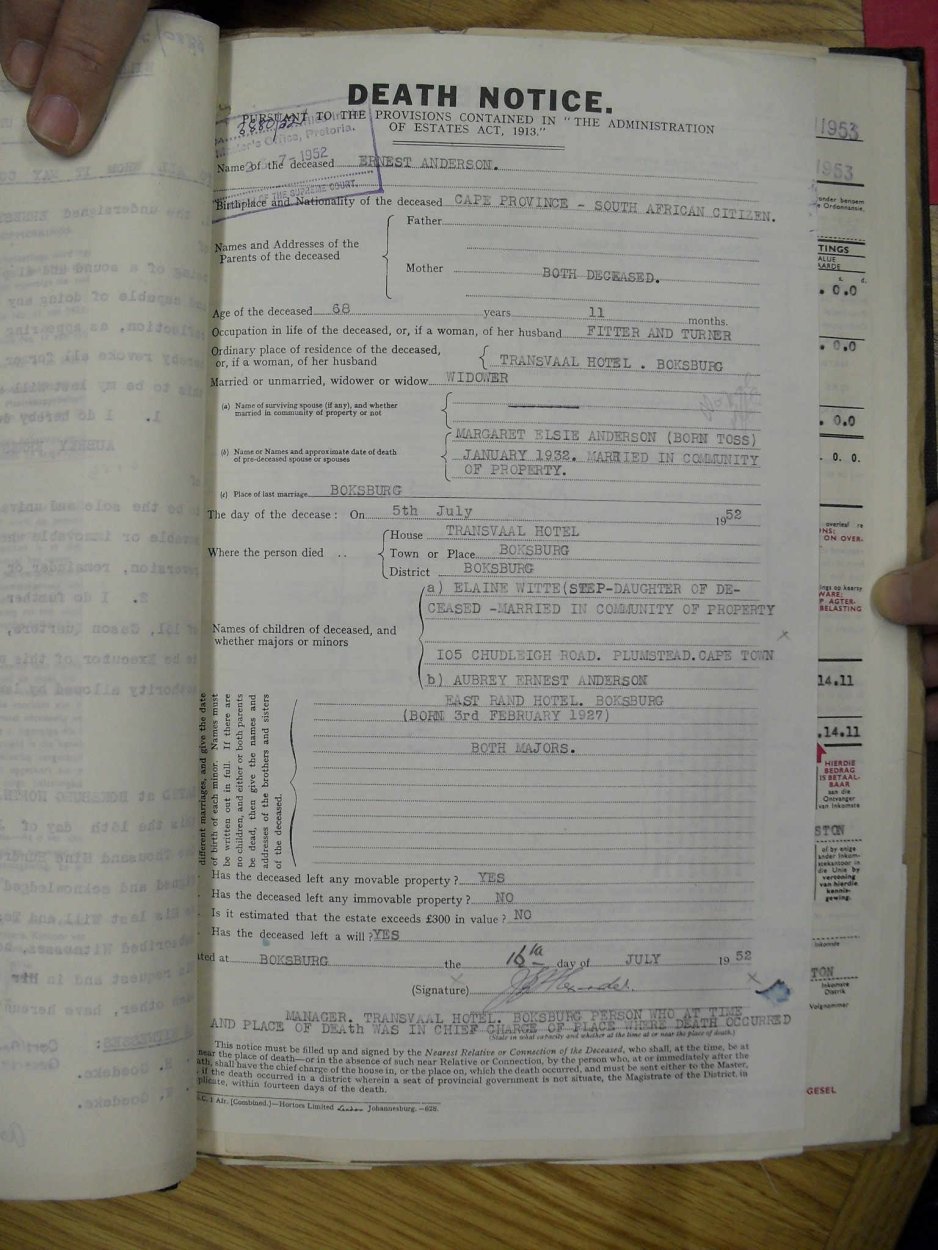 DEATH NOTICE.
PURSUANT TO THE PROVISIONS CONTAINED IN "THE ADMINISTRATION
OF ESTATES ACT, 1913."
3680/52
Master's Office, Pretoria.
7-1952
OF THE SUPREME COURT.
Name of the deceased ERNEST ANDERSON.
Birthplace and Nationality of the deceased CAPE PROVINCE - SOUTH AFRICAN CITIZEN.
Names and Addresses of the
Parents of the deceased
Father
Mother BOTH DECEASED.
Age of the deceased 68 years 11 months.
Occupation in life of the deceased, or, if a woman, of her husband FITTER AND TURNER
Ordinary place of residence of the deceased,
or, if a woman, of her husband TRANSVAAL HOTEL . BOKSBURG
Married or unmarried, widower or widow WIDOWER
(a) Name of surviving spouse (if any), and whether
married in community of property or not
(b) Name or Names and approximate date of death
of pre-deceased spouse or spouses
MARGARET ELSIE ANDERSON (BORN TOSS)
JANUARY 1932. MARRIED IN COMMUNITY
OF PROPERTY.
(c) Place of last marriage BOKSBURG
The day of the decease : On 5th July 1952
Where the person died ..
House TRANSVAAL HOTEL
Town or Place BOKSBURG
District BOKSBURG
Names of children of deceased, and
whether majors or minors
a) ELAINE WITTE(STEP-DAUGHTER OF DE-
CEASED -MARRIED IN COMMUNITY OF PROPERTY
105 CHUDLEIGH ROAD. PLUMSTEAD.CAPE TOWN
b) AUBREY ERNEST ANDERSON
EAST RAND HOTEL. BOKSBURG
(BORN 3rd FEBRUARY 1927)
BOTH MAJORS.
different marriages, and give the date
of birth of each minor. Names must
be written out in full. If there are
no children, and either or both parents
be dead, then give the names and
addresses of the brothers and sisters
of the deceased.
Has the deceased left any movable property ? YES
Has the deceased left any immovable property ? NO
Is it estimated that the estate exceeds £300 in value ? NO
Has the deceased left a will ? YES
ated at BOKSBURG the 16th day of JULY 1952
(Signature)
MANAGER. TRANSVAAL HOTEL. BOKSBURG PERSON WHO AT TIME
AND PLACE OF DEAth WAS IN CHIEF CHARGE OF PLACE WHERE DEATH OCCURRED
(State in what capacity and whether at the time at or near the place of death.)
This notice must be filled up and signed by the Nearest Relative or Connection of the Deceased, who shall, at the time, be at
near the place of death—or in the absence of such near Relative or Connection, by the person who, at or immediately after the
ath, shall have the chief charge of the house in, or the place on, which the death occurred, and must be sent either to the Master,
if the death occurred in a district wherein a seat of provincial government is not situate, the Magistrate of the District, in
plicate, within fourteen days of the death.
1 Afr. [Combined.]—Hortors Limited London Johannesburg.—628.
1953
1953
onder benoem
e Ordonnansie.
TINGS
ALUE
AARDE
s. d.
. 0.0
. 0.0
. 0.0
. 0. 0.
overleaf re
NS:
ON OVER-
ings op keersy
WARE:
P AGTER-
BELASTING
14.11
.14.11
HIERDIE
BEDRAG
IS BETAAL-
BAAR
aan die
Ontvanger
van Inkomste
STON
of by enige
ander Inkom-
stekantoor in
die Unie by
vertoning
van hierdie
kennis-
gewing.
Inkomste
TON
Inkomste
Distrik
Volgnommer
GESEL